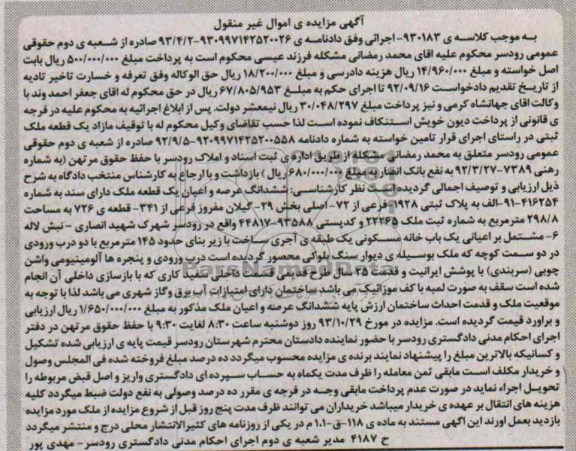 آگهی مزایده ی اموال غیر منقول
به موجب کلاسه ی ۹۳۰۱۸۳-اجرائی وفق دادنامه ی ۹۳۰۹۹۷۱۴۲۵۲۰۰۲۶-۹۳/۴/۲ صادره از شعبه ی دوم حقوقی
عمومی رودسر محکوم علیه اقای محمد رمضانی مشکله فرزند عیسی محکوم است به پرداخت مبلغ ۵۰۰/۰۰۰/۰۰۰ ریال بابت
اصل خواسته و مبلغ ۱۴/۹۶۰/۰۰۰ ریال هزینه دادرسی و مبلغ ۱۸/۲۰۰/۰۰۰ ریال حق الوکاله وفق تعرفه و خسارت تاخیر تادیه
از تاریخ تقدیم دادخواست ۹۲/۰۹/۱۶ تا اجرای حکم به مبلغ ۶۷/۸۰۵/۹۵۳ ریال در حق محکوم له اقای جعفر احمد وند با
وکالت اقای جهانشاه کرمی و نیز پرداخت مبلغ ۳۰/۰۴۸/۲۹۷ ریال نیمعشر دولت. پس از ابلاغ اجرائیه به محکوم علیه در فرجه
ی قانونی از پرداخت دیون خویش استنکاف نموده است لذا حسب تقاضای وکیل محکوم له با توقیف مازاد یک قطعه ملک
ثبتی در راستای اجرای قرار تامین خواسته به شماره دادنامه ۹۲۰۹۹۷۱۴۲۵۲۰۰۵۵۸-۹۲/۹/۵ صادره از شعبه ی دوم حقوقی
عمومی رودسر متعلق به محمد رمضانی مشکله از طریق اداره ی ثبت اسناد و املاک رودسر با حفظ حقوق مرتهن (به شماره
رهنی ۷۳۸۹-۹۲/۳/۲۷ به نفع بانک انصار به مبلغ ۶۸۰/۰۰۰/۰۰۰ ریال) بازداشت و با ارجاع به کارشناس منتخب دادگاه به شرح
ذیل ارزیابی و توصیف اجمالی گردیده است نظر کارشناسی: ششدانگ عرصه و اعیان یک قطعه ملک دارای سند به شماره
۴۱۶۲۵۴-۹۱-الف به پلاک ثبتی ۱۹۲۸ فرعی از ۷۲-اصلی بخش ۲۹-گیلان مفروز فرعی از ۳۴۱- قطعه ی ۷۲۶ به مساحت
۲۹۸/۸ مترمربع به شماره ثبت ملک ۲۲۲۶۵ و کدپستی ۹۳۵۸۸-۴۴۸۱۷ واقع در رودسر شهرک شهید انصاری - نبش لاله
۶- مشتمل بر اعیانی یک باب خانه مسکونی یک طبقه ی آجری ساخت با زیر بنای حدود ۱۴۵ مترمربع با دو درب ورودی
در دو سمت کوچه که ملک بوسیله ی دیوار سنگ بلوکی محصور گردیده است درب ورودی و پنجره ها آلومینیومی واشن
چوبی (سربندی) با پوشش ایرانیت و قدمت ۲۵ سال سفید کاری که با بازسازی داخلی آن انجام
شده است سقف به صورت لمبه با کف موزائیک می باشد ساختمان دارای امتیازات آب برق و گاز شهری می باشد لذا با توجه به
موقعیت ملک و قدمت احداث ساختمان ارزش پایه ششدانگ عرصه و اعیان ملک مذکور به مبلغ ۱/۶۵۰/۰۰۰/۰۰۰ ریال ارزیابی
و براورد قیمت گردیده است. مزایده در مورخ ۹۳/۱۰/۲۹ روز دوشنبه ساعت ۸:۳۰ لغایت ۹:۳۰ با حفظ حقوق مرتهن در دفتر
اجرای احکام مدنی دادگستری رودسر با حضور نماینده دادستان محترم شهرستان رودسر قیمت پایه ی ارزیابی شده تشکیل
و کسانیکه بالاترین مبلغ را پیشنهاد نمایند برنده ی مزایده محسوب میگردد ده درصد مبلغ فروخته شده فی المجلس وصول
و خریدار مکلف است مابقی ثمن معامله را ظرف مدت یکماه به حساب سپرده ای دادگستری واریز و اصل قبض مربوطه را
تحویل اجراء نماید در صورت عدم پرداخت مابقی وجه در فرجه ی مقرر ده درصد وصولی به نفع دولت ضبط میگردد کلیه
هزینه های انتقال بر عهده ی خریدار میباشد خریداران می توانند ظرف مدت پنج روز قبل از شروع مزایده از ملک مورد مزایده
بازدید بعمل اورند این اگهی مستند به ماده ی ۱۱۸-ق-۱.۱ م در یکی از روزنامه های کثیرالانتشار محلی درج و منتشر میگردد
ح ۴۱۸۷ مدیر شعبه ی دوم اجرای احکام مدنی دادگستری رودسر- مهدی پور